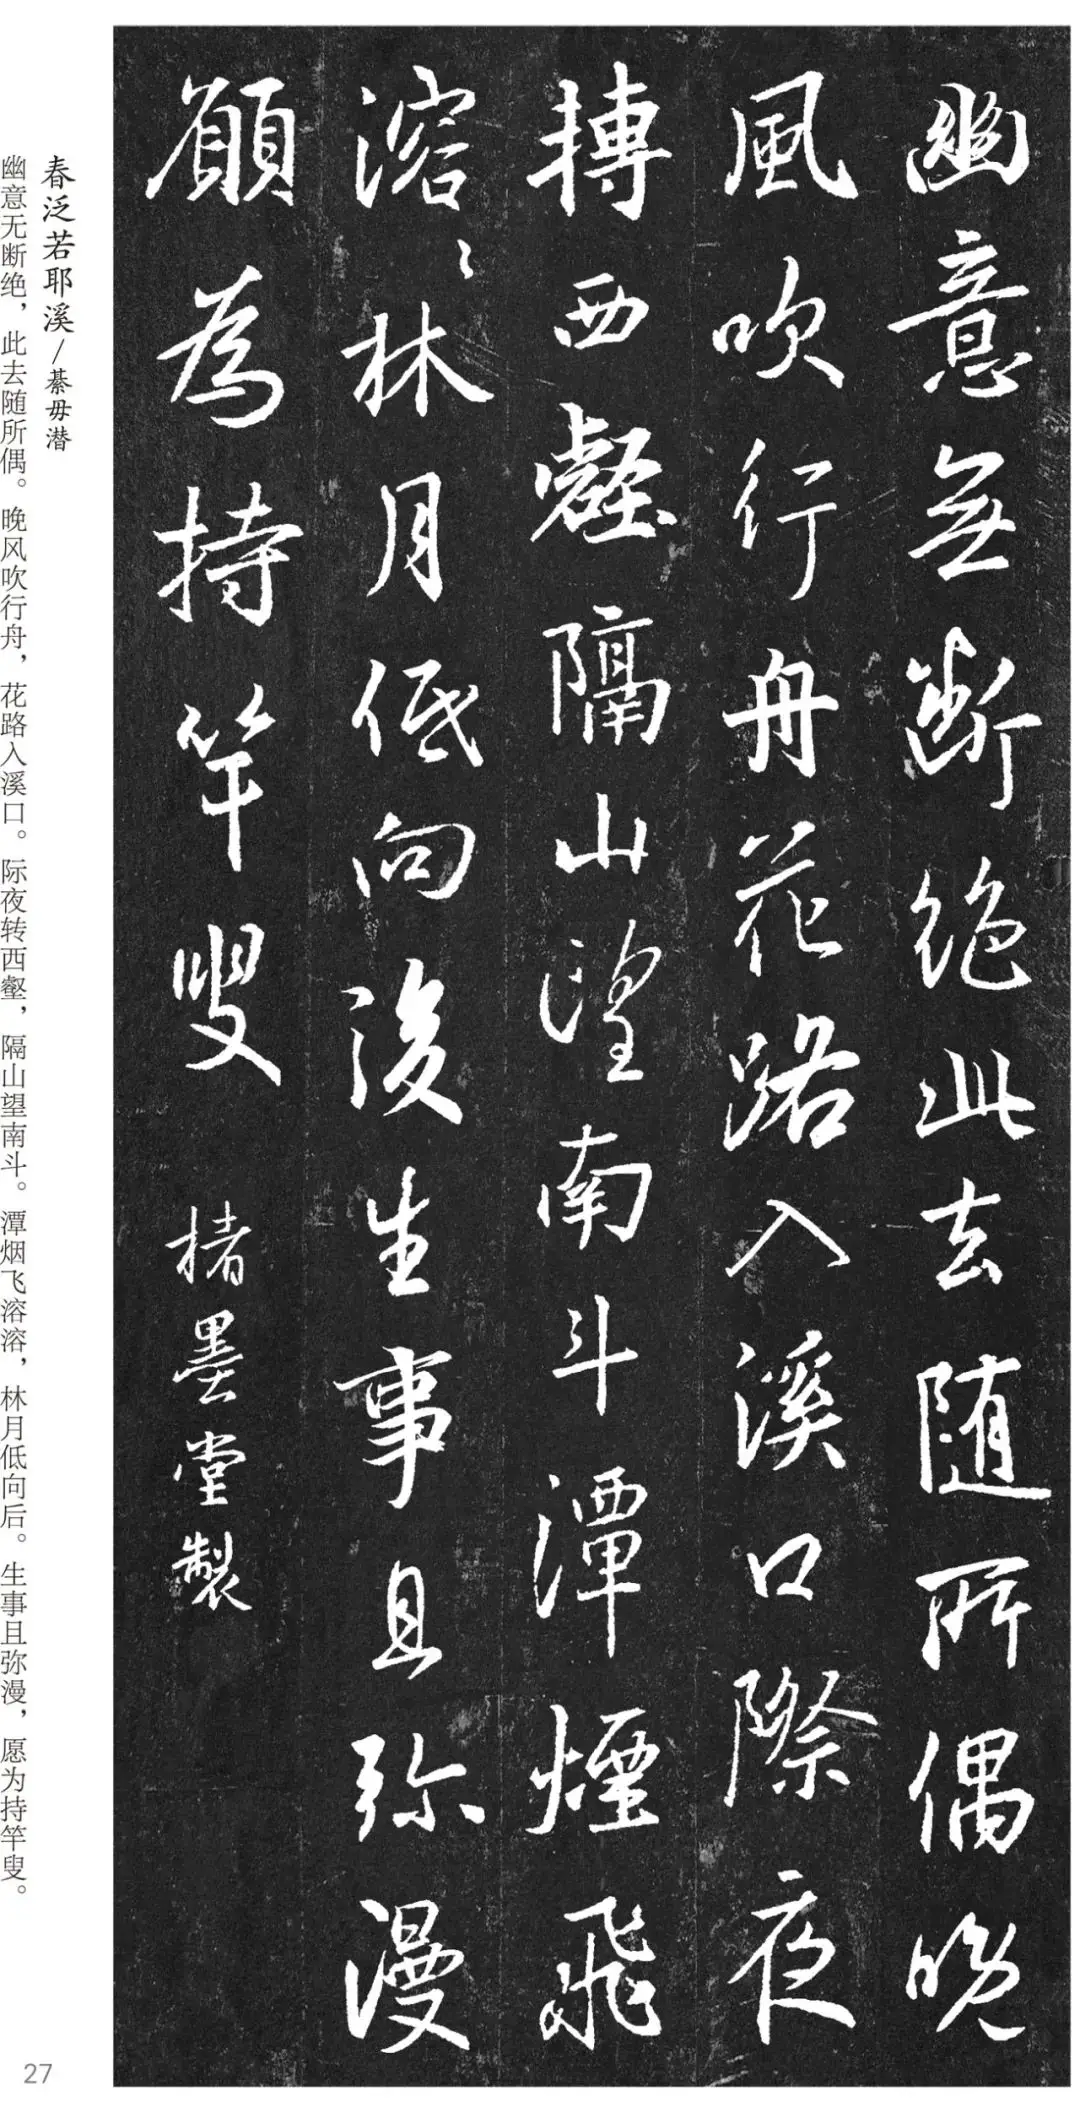 幽意無断绝此去随所偶晚
風吹行舟花路入溪口際夜
摶西壑隔山望南斗潭煙飛
溶〻林月低向後生事且弥漫
願為持竿叟
楮墨堂製
春泛若耶溪/綦毋潜
幽意无断绝，此去随所偶。晚风吹行舟，花路入溪口。际夜转西壑，隔山望南斗。潭烟飞溶溶，林月低向后。生事且弥漫，愿为持竿叟。
27